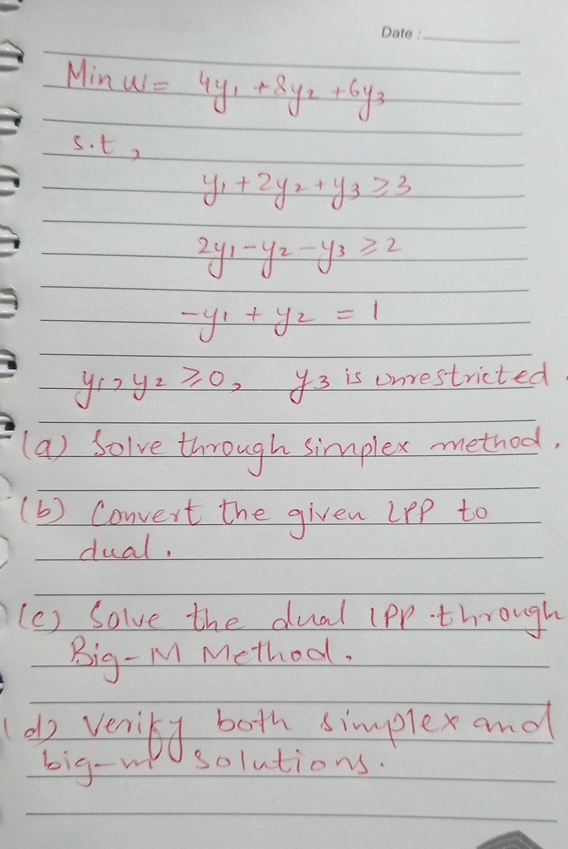 Date :
Min w = 4y₁ + 8y₂ + 6y₃
s.t,
y₁ + 2y₂ + y₃ ≥ 3
2y₁ - y₂ - y₃ ≥ 2
-y₁ + y₂ = 1
y₁, y₂ ≥ 0, y₃ is unrestricted.
(a) Solve through simplex method.
(b) Convert the given LPP to
dual.
(c) Solve the dual LPP through
Big-M Method.
(d) Verify both simplex and
big-m solutions.